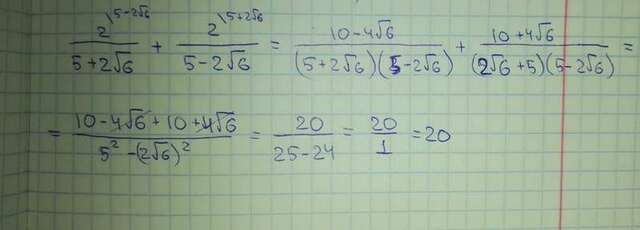 2^{\5-2√6}/(5+2√6) + 2^{\5+2√6}/(5-2√6) = (10-4√6)/((5+2√6)(5-2√6)) + (10+4√6)/((2√6+5)(5-2√6)) =
= (10-4√6+10+4√6)/(5²-(2√6)²) = 20/(25-24) = 20/1 = 20